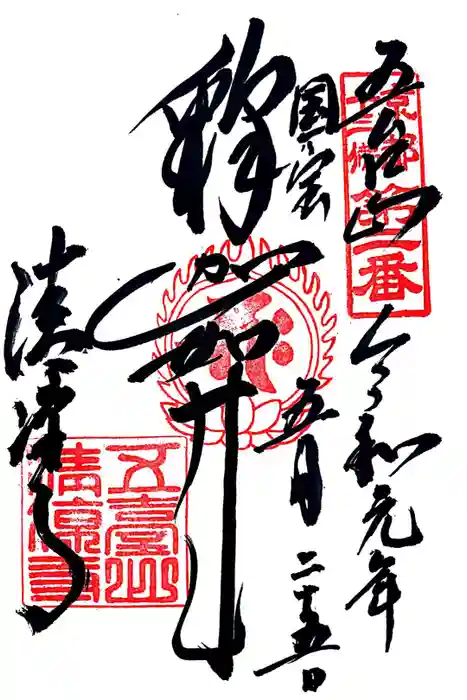 京都
十三佛
第二番
五台山
令和元年
五月
二十五日
国宝
釋迦如来
清凉寺
五臺山
清凉寺